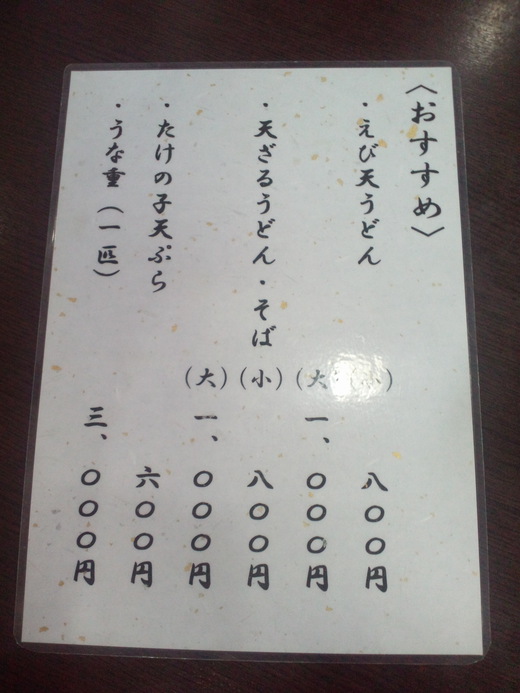 〈おすすめ〉
・えび天うどん (小) 八〇〇円
(大) 一、〇〇〇円
・天ざるうどん・そば (小) 八〇〇円
(大) 一、〇〇〇円
・たけの子天ぷら 六〇〇円
・うな重 (一匹) 三、〇〇〇円